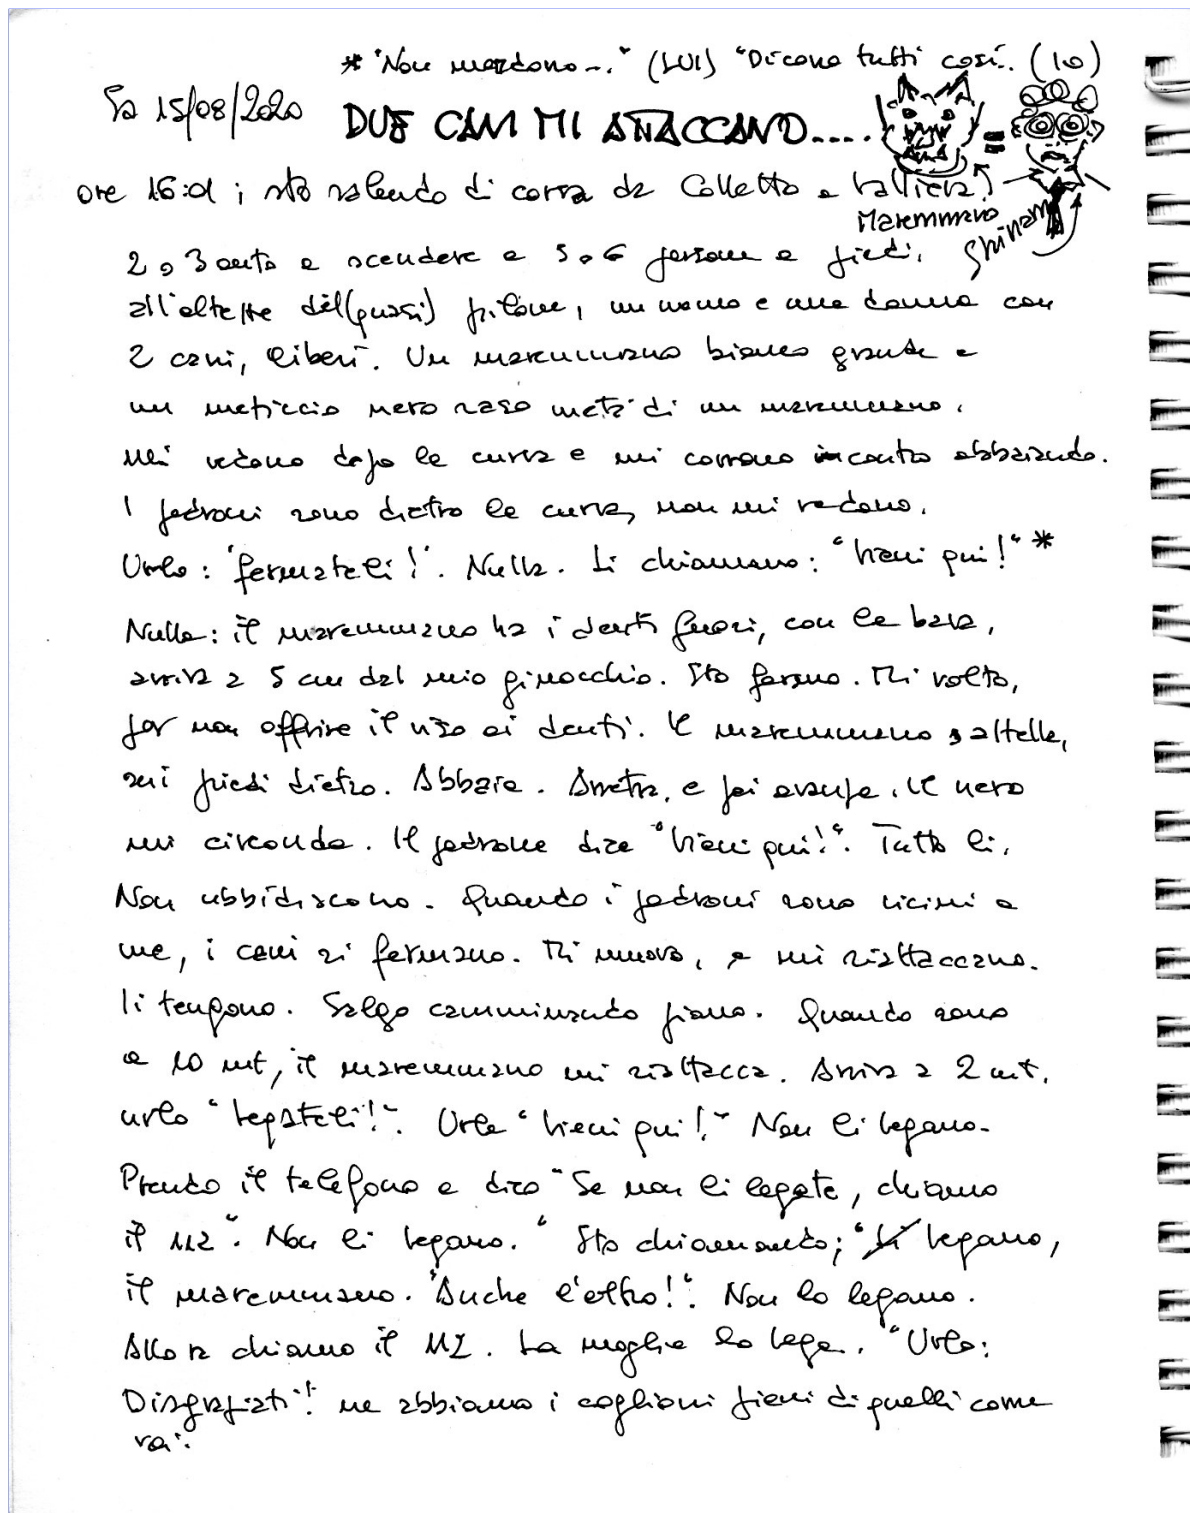 * "Non mordono..." (LUI) "Dicono tutti così.. (IO)
Sa 15/08/2020
DUE CANI MI ATTACCANO....
=
ore 16:01; sto salendo di corsa da Colletto a
Maremmano
2 o 3 auto a scendere e 5 o 6 persone a piedi.
all'altezza del(quasi) pilone, un uomo e una donna con
2 cani, liberi. Un maremmano bianco grande e
un meticcio nero raso metà di un maremmano.
Mi vedono dopo la curva e mi corrono incontro abbaiando.
I padroni sono dietro la curva, non mi vedono.
Urlo: "fermateli!". Nulla. Li chiamano: "Vieni qui!" *
Nulla: il maremmano ha i denti fuori, con la bava,
arriva a 5 cm dal mio ginocchio. Sto fermo. Mi volto,
per non offrire il viso ai denti. Il maremmano saltella,
sui piedi dietro. Abbaia. Arretra, e poi avanza. Il nero
mi circonda. Il padrone dice "Vieni qui!". Tutto lì.
Non ubbidiscono. Quando i padroni sono vicini a
me, i cani si fermano. Mi muovo, e mi riattaccano.
li tengono. Salgo camminando piano. Quando sono
a 10 mt, il maremmano mi riattacca. Arriva a 2 mt.
urlo "legateli!". Urla "Vieni qui!" Non li legano.
Prendo il telefono e dico "Se non li legate, chiamo
il 112". Non li legano. "Sto chiamando;" legano,
il maremmano. "Anche l'altro!". Non lo legano.
Allora chiamo il 112. La moglie lo lega. "Urlo:
Disgraziati! ne abbiamo i coglioni pieni di quelli come
voi".